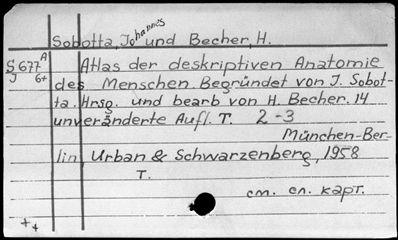 Sobotta, Johannes und Becher, H.
S 677 A Atlas der deskriptiven Anatomie
J 6+ des Menschen. Begründet von J. Sobot-
ta. Hrsg. und bearb von H. Becher. 14
unveränderte Aufl. T. 2-3
München-Ber-
lin, Urban & Schwarzenberg, 1958
T.
см. сл. карт.